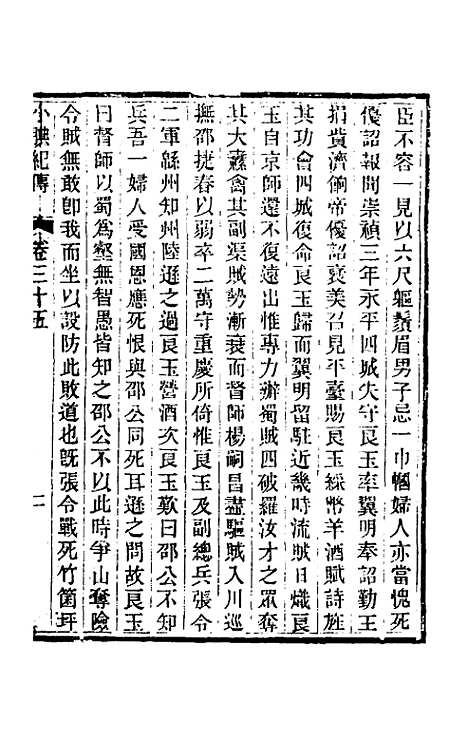 臣不容一見以六尺軀鬚眉男子忌一巾幗婦人亦當愧死
優詔報聞崇禎三年永平四城失守良玉率翼明奉詔勤王
捐貲濟餉帝優詔褒美召見平臺賜良玉綵幣羊酒賦詩旌
其功會四城復命良玉歸而翼明留駐近畿時流賊日熾良
玉自京師還不復遠出惟專力辦蜀賊四破羅汝才之眾奪
其大纛禽其副渠賊勢漸衰而督師楊嗣昌盡驅賊入川巡
撫邵捷春以弱卒二萬守重慶所倚惟良玉及副總兵張令
二軍緜州知州陸遜之過良玉營酒次良玉歎曰邵公不知
兵吾一婦人受國恩應死恨與邵公同死耳遜之問故良玉
曰督師以蜀爲壑無智愚皆知之邵公不以此時爭山奪險
令賊無敢卽我而坐以設防此敗道也旣張令戰死竹箇坪
小腆紀傳 卷三十五 二